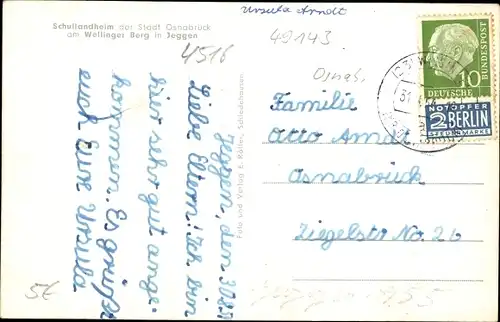 Ursula Arndt
Schullandheim der Stadt Osnabrück
am Wellinger Berg in Jeggen
4516
49143
Osnab.
Jeggen, den
Liebe Eltern! Ich bin
hier sehr gut ange-
kommen. Es grüßt
euch Eure Ursula
Foto und Verlag E. Rölker, Schledehausen
Familie
Otto Arndt
Osnabrück
Ziegelstr No. 26
10
DEUTSCHE
BUNDESPOST
NOTOPFER
2 BERLIN
STEUERMARKE
5€